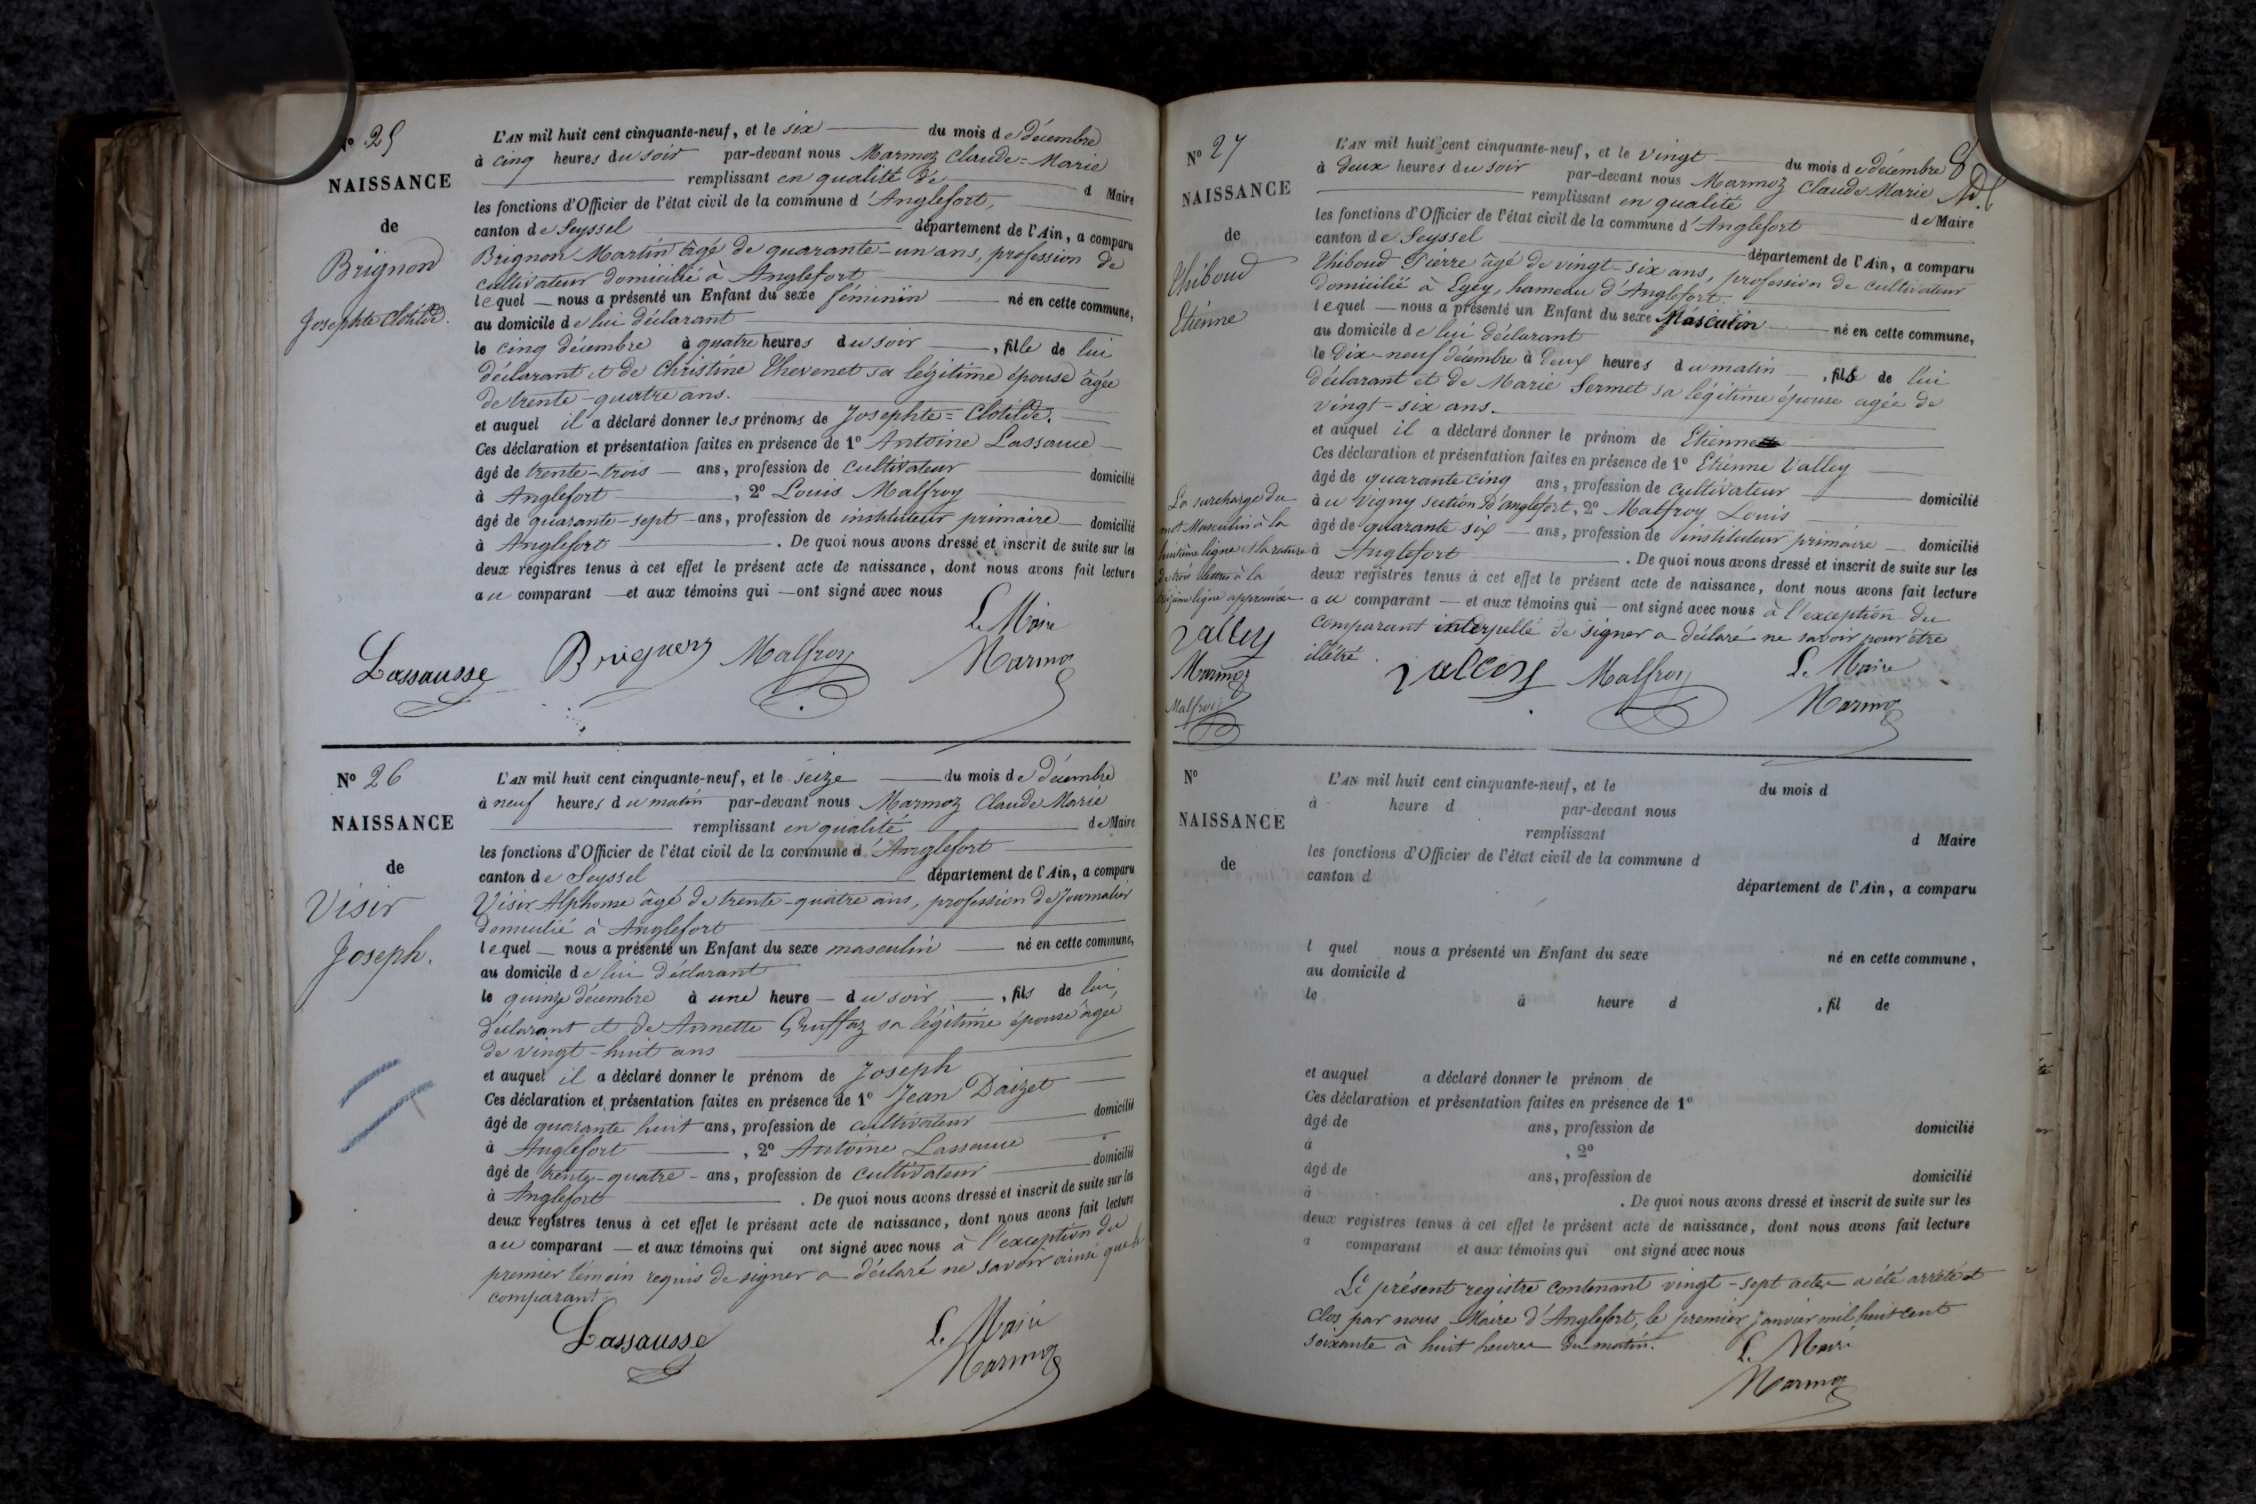 N° 25
NAISSANCE
de
Brignon
Josephte Clotilde.
L'AN mil huit cent cinquante-neuf, et le six du mois de décembre
à cinq heures du soir par-devant nous Marmoz Claude=Marie
remplissant en qualité de d Maire
les fonctions d'Officier de l'état civil de la commune d'Anglefort,
canton de Seyssel département de l'Ain, a comparu
Brignon Martin âgé de quarante-un ans, profession de
cultivateur domicilié à Anglefort
lequel nous a présenté un Enfant du sexe féminin né en cette commune,
au domicile de lui déclarant
le cinq décembre à quatre heures du soir, fille de lui
déclarant et de Christine Thevenet sa légitime épouse âgée
de trente-quatre ans.
et auquel il a déclaré donner les prénoms de Josephte=Clotilde.
Ces déclaration et présentation faites en présence de 1° Antoine Lassausse
âgé de trente-trois ans, profession de cultivateur domicilié
à Anglefort, 2° Louis Malfroy
âgé de quarante-sept ans, profession de instituteur primaire domicilié
à Anglefort. De quoi nous avons dressé et inscrit de suite sur les
deux registres tenus à cet effet le présent acte de naissance, dont nous avons fait lecture
au comparant et aux témoins qui ont signé avec nous
Le Maire
Lassausse Brignon Malfroy Marmoz
N° 26
NAISSANCE
de
Visir
Joseph.
L'AN mil huit cent cinquante-neuf, et le seize du mois de décembre
à neuf heures du matin par-devant nous Marmoz Claude Marie
remplissant en qualité de Maire
les fonctions d'Officier de l'état civil de la commune d'Anglefort
canton de Seyssel département de l'Ain, a comparu
Visir Alphonse âgé de trente-quatre ans, profession de Journalier
domicilié à Anglefort
lequel nous a présenté un Enfant du sexe masculin né en cette commune,
au domicile de lui déclarant
le quinze décembre à une heure du soir, fils de lui,
déclarant et de Annette Gruffaz sa légitime épouse âgée
de vingt-huit ans
et auquel il a déclaré donner le prénom de Joseph
Ces déclaration et présentation faites en présence de 1° Jean Daizet
âgé de quarante huit ans, profession de cultivateur domicilié
à Anglefort, 2° Antoine Lassausse
âgé de trente-quatre ans, profession de cultivateur domicilié
à Anglefort. De quoi nous avons dressé et inscrit de suite sur les
deux registres tenus à cet effet le présent acte de naissance, dont nous avons fait lecture
au comparant et aux témoins qui ont signé avec nous à l'exception du
premier témoin requis de signer a déclaré ne savoir ainsi que le
comparant.
Lassausse Le Maire
Marmoz
N° 27
NAISSANCE
de
Thiboud
Etienne
L'AN mil huit cent cinquante-neuf, et le vingt du mois de décembre
à deux heures du soir par-devant nous Marmoz Claude Marie
remplissant en qualité de Maire
les fonctions d'Officier de l'état civil de la commune d'Anglefort
canton de Seyssel département de l'Ain, a comparu
Thiboud Pierre âgé de vingt-six ans, profession de cultivateur
domicilié à Eyey, hameau d'Anglefort.
lequel nous a présenté un Enfant du sexe Masculin né en cette commune,
au domicile de lui déclarant
le dix-neuf décembre à deux heures du matin, fils de lui
déclarant et de Marie Sermet sa légitime épouse agée de
vingt-six ans.
et auquel il a déclaré donner le prénom de Etienne
Ces déclaration et présentation faites en présence de 1° Etienne Valley
âgé de quarante cinq ans, profession de cultivateur domicilié
à u Vigny section d'anglefort, 2° Malfroy Louis
âgé de quarante six ans, profession de instituteur primaire domicilié
à Anglefort. De quoi nous avons dressé et inscrit de suite sur les
deux registres tenus à cet effet le présent acte de naissance, dont nous avons fait lecture
au comparant et aux témoins qui ont signé avec nous à l'exception du
comparant interpellé de signer a déclaré ne savoir pour être
illétré.
Valley Malfroy Le Maire
Marmoz
La surcharge du
mot Masculin à la
huitième ligne et la rature
de trois lettres à la
treizième ligne approuvées
Valley
Marmoz
Malfroy
N°
NAISSANCE
de
L'AN mil huit cent cinquante-neuf, et le du mois d
à heure d par-devant nous
remplissant d Maire
les fonctions d'Officier de l'état civil de la commune d
canton d département de l'Ain, a comparu
l quel nous a présenté un Enfant du sexe né en cette commune,
au domicile d
le à heure d , fil de
et auquel a déclaré donner le prénom de
Ces déclaration et présentation faites en présence de 1°
âgé de ans, profession de domicilié
à , 2°
âgé de ans, profession de domicilié
à . De quoi nous avons dressé et inscrit de suite sur les
deux registres tenus à cet effet le présent acte de naissance, dont nous avons fait lecture
a comparant et aux témoins qui ont signé avec nous
Le présent registre contenant vingt-sept actes a été arrêté et
clos par nous Maire d'Anglefort, le premier janvier mil huit cent
soixante à huit heures du matin.
Le Maire
Marmoz